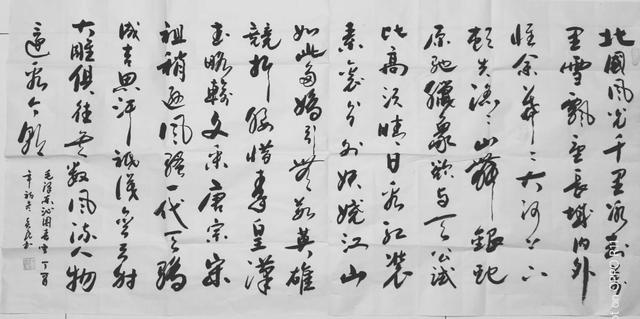 北國風光千里冰封萬
里雪飄望長城內外
惟余莽〻大河上下
頓失滔〻山舞銀蛇
原馳蠟象欲與天公試
比高須晴日看紅裝
素裹分外妖嬈江山
如此多嬌引無數英雄
競折腰惜秦皇漢
武略輸文采唐宗宋
祖稍遜風騷一代天驕
成吉思汗祇識彎弓射
大雕俱往矣數風流人物
還看今朝
毛澤東沁園春雪丁酉
on OPPO R11